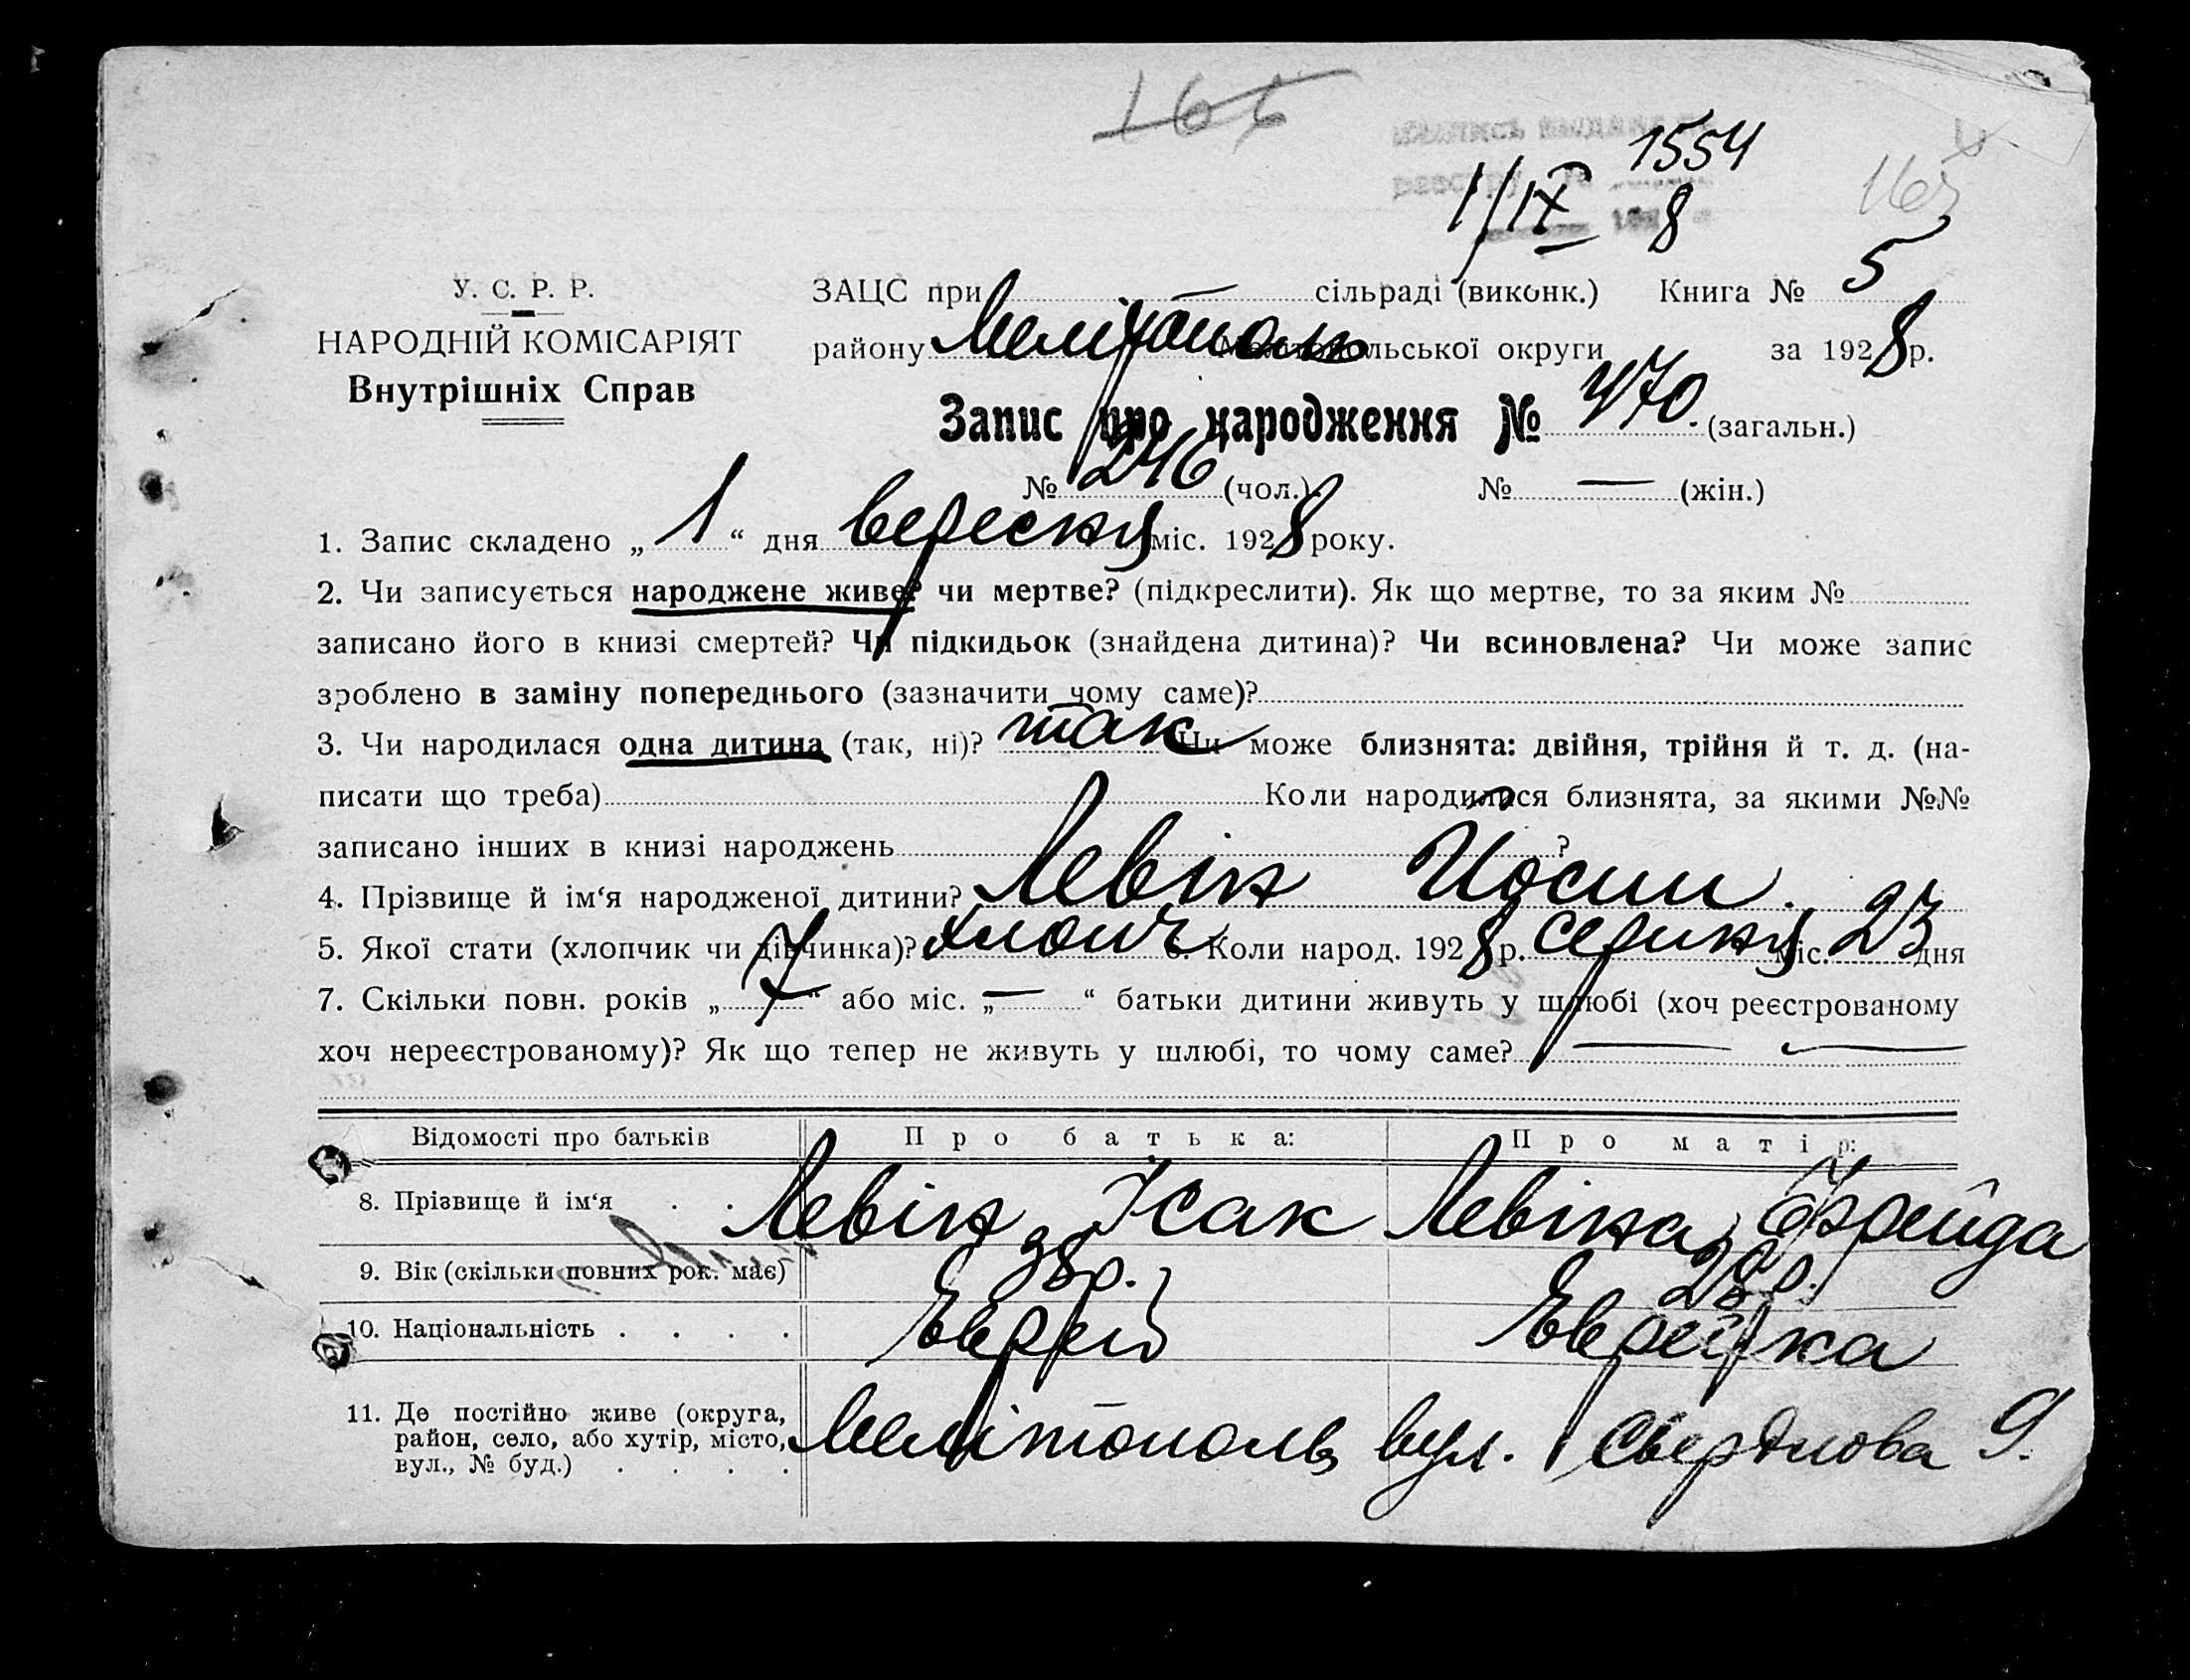 166
1554
1/IX 8
163
У. С. Р. Р.
НАРОДНІЙ КОМІСАРІЯТ
Внутрішніх Справ
ЗАЦС при — сільраді (виконк.) Книга № 5
району Мелітополь Мелітопольської округи за 1928 р.
Запис про народження № 470. (загальн.)
№ 246 (чол.) № — (жін.)
1. Запис складено „ 1 “ дня вересня міс. 1928 року.
2. Чи записується народжене живе? чи мертве? (підкреслити). Як що мертве, то за яким №
записано його в книзі смертей? Чи підкидьок (знайдена дитина)? Чи всиновлена? Чи може запис
зроблено в заміну попереднього (зазначити чому саме)?
3. Чи народилася одна дитина (так, ні)? так Чи може близнята: двійня, трійня й т. д. (на-
писати що треба) Коли народилися близнята, за якими №№
записано інших в книзі народжень ?
4. Прізвище й ім‘я народженої дитини? Левін Йосип.
5. Якої стати (хлопчик чи дівчинка)? хлопч 6. Коли народ. 1928 р. серпня міс. 23 дня
7. Скільки повн. років „ 7 “ або міс. „ — “ батьки дитини живуть у шлюбі (хоч реєстрованому
хоч нереєстрованому)? Як що тепер не живуть у шлюбі, то чому саме? — —
Відомості про батьків Про батька: Про матір:
8. Прізвище й ім‘я . . Левін Ісак Левіна Фрейда
9. Вік (скільки повних рок. має) 38 р. 28 р.
10. Національність . . . . Еврей Еврейка
11. Де постійно живе (округа,
район, село, або хутір, місто,
вул., № буд.) . . . . Мелітополь вул. Свердлова 9.